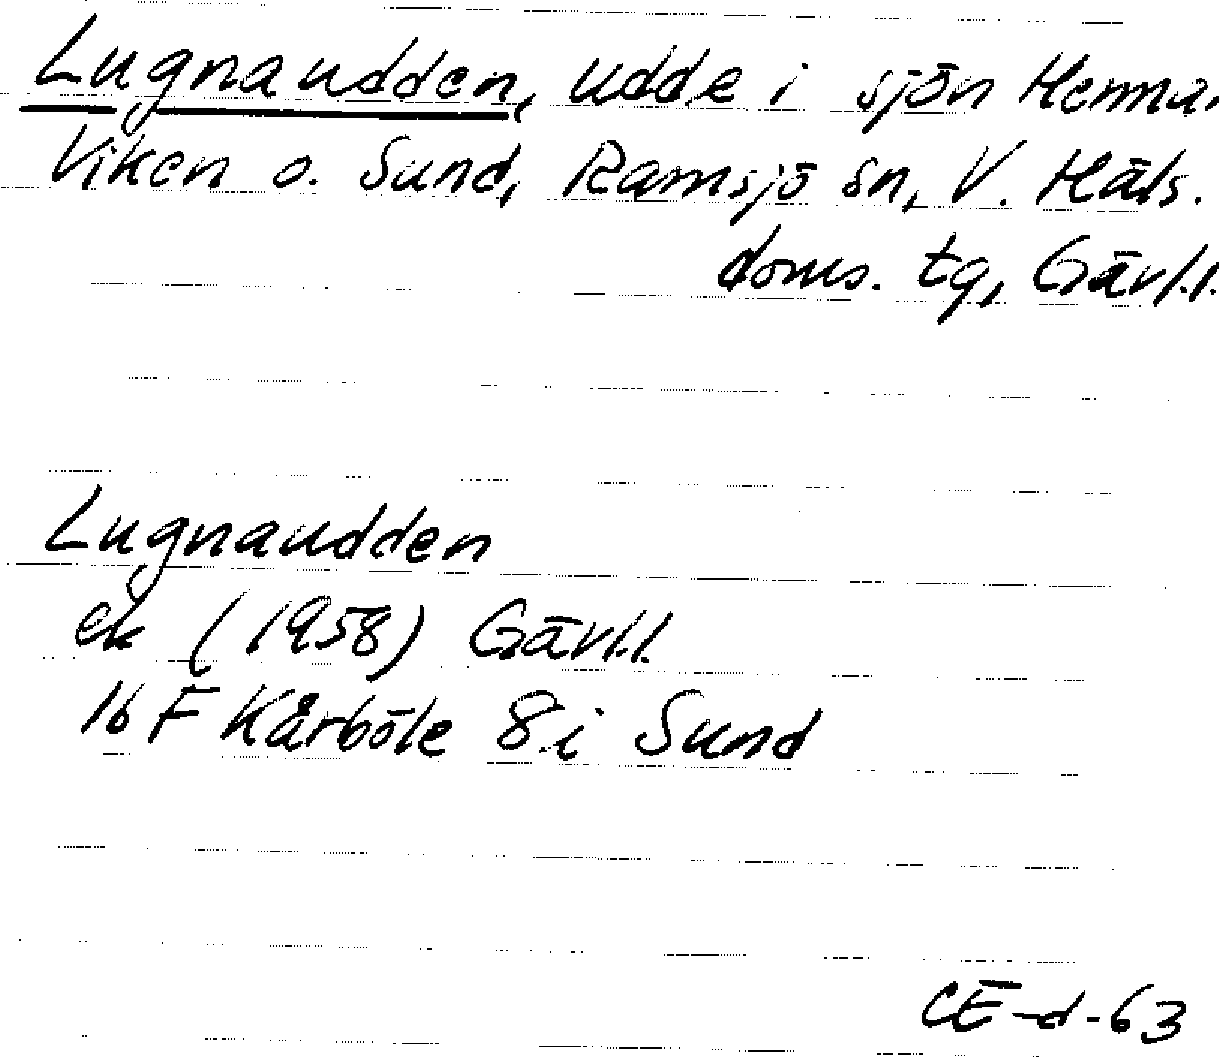 Lugnaudden, udde i sjön Hemma-
Viken o. Sund, Ramsjö sn, V. Häls.
doms. tg, Gävl.l.
Lugnaudden
ek (1958) Gävl.l.
16 F Kårböle 8 i Sund
CE-d-63